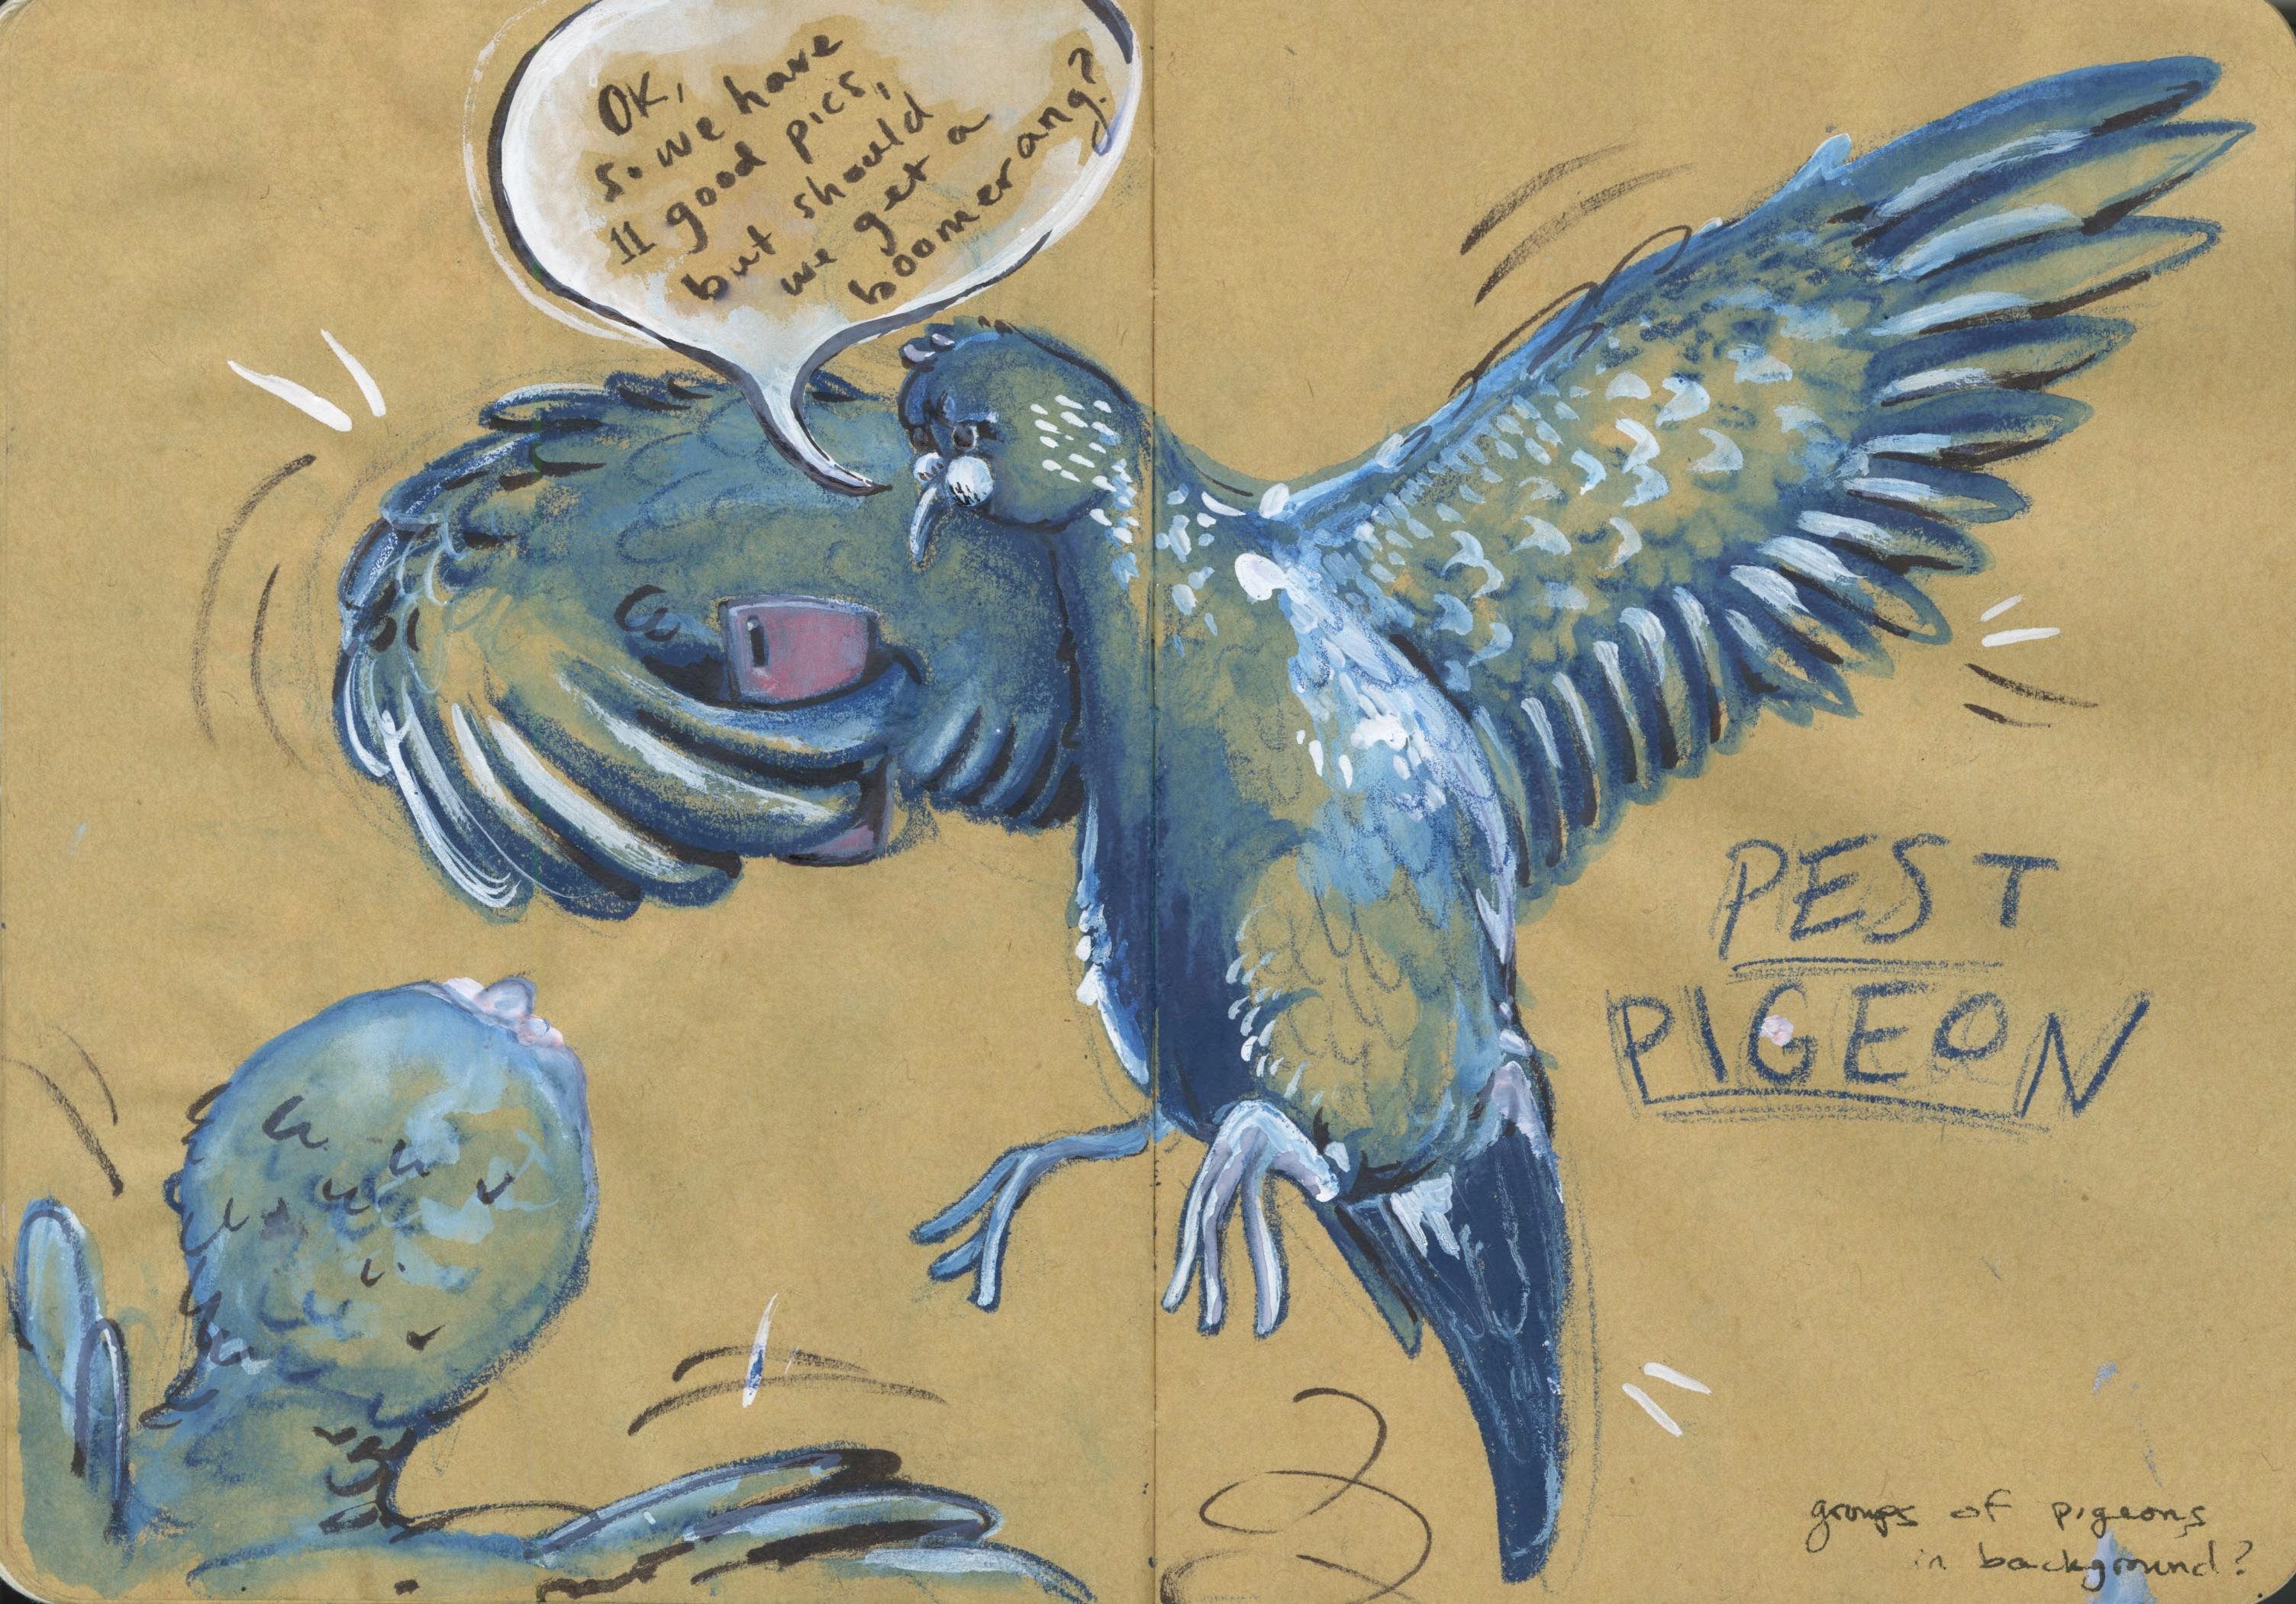 OK,
so we have
11 good pics,
but should
we get a
boomerang?
PEST
PIGEON
groups of pigeons
in background?